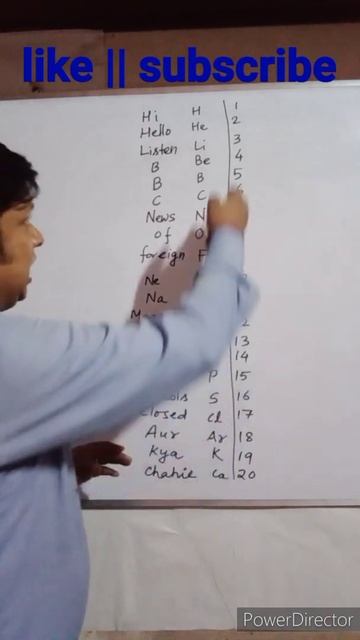 like || subscribe
Hi H 1
Hello He 2
Listen Li 3
B Be 4
B B 5
C C
News N
of O
foreign F
Ne
Na
13
14
P 15
S 16
closed Cl 17
Aur Ar 18
Kya K 19
Chahie Ca 20
PowerDirector